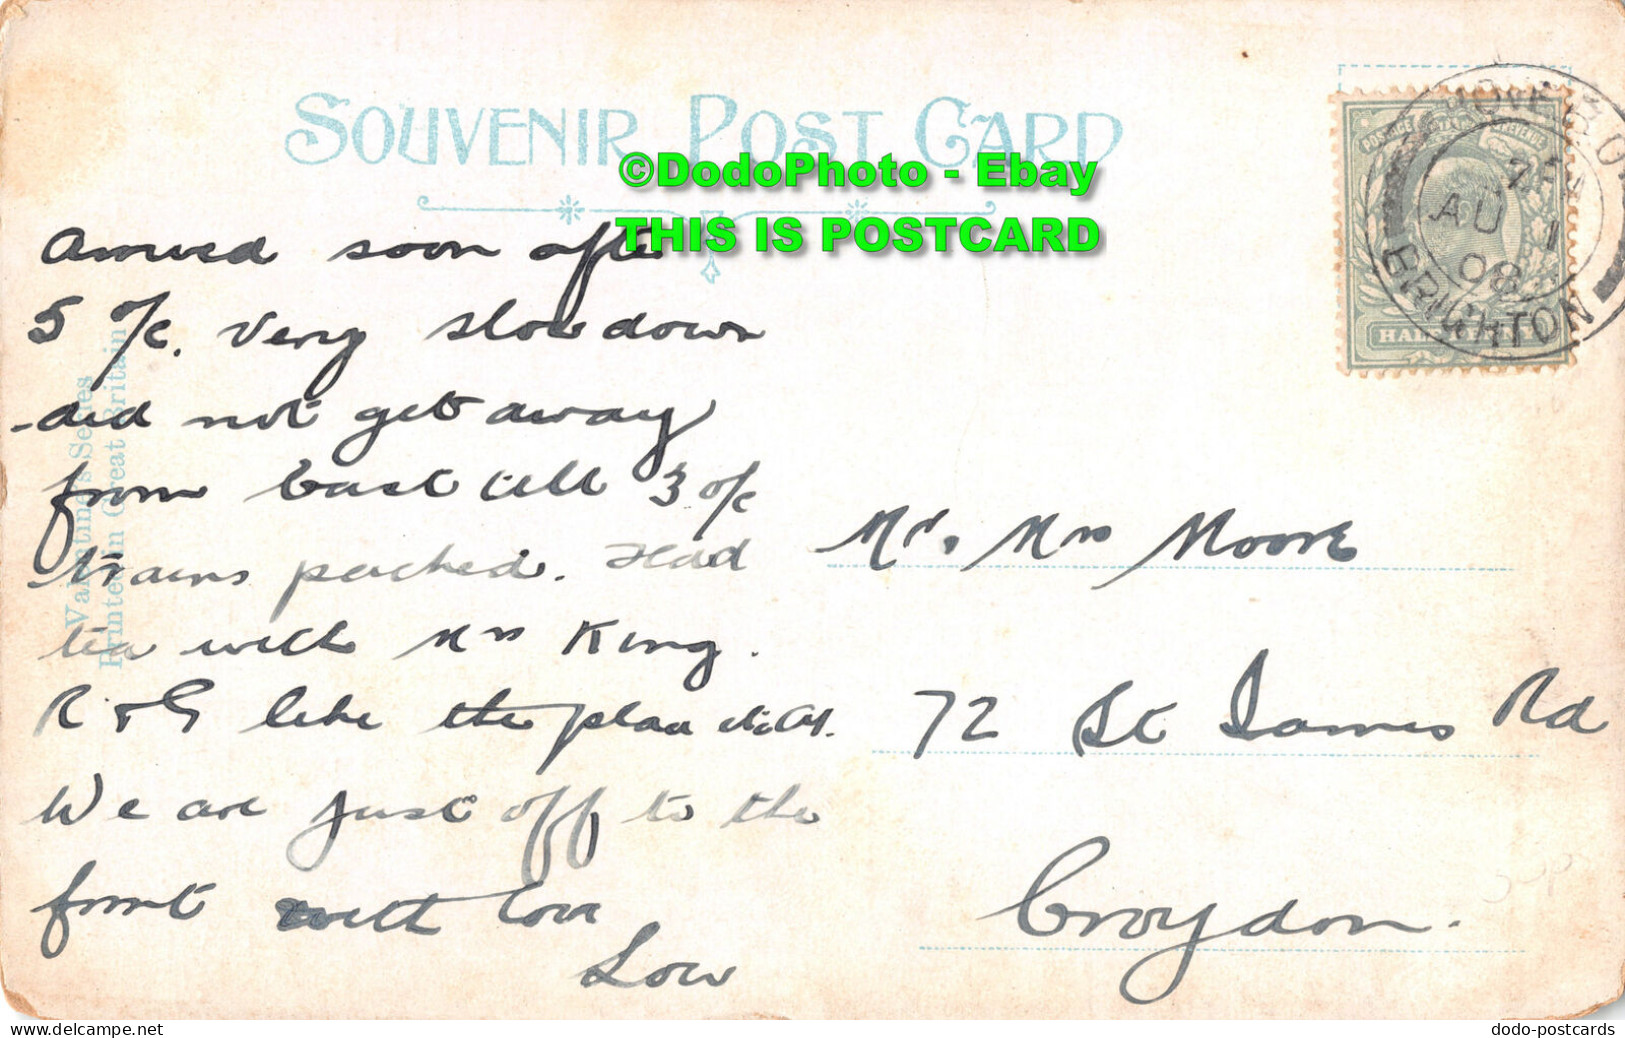 SOUVENIR POST CARD
©DodoPhoto - Ebay
THIS IS POSTCARD
Arrived soon after
5 o/c. Very slow down
- did not get away
from East till 3 o/c
trains packed. Had
tea with Mrs King.
R & G like the place
We are just off to the
front with love
Lou
Valentine's Series
Printed in Great Britain
POSTAGE REVENUE
HALF PENNY
HOVE B.O.
AU 1
08
BRIGHTON
Mr. Mrs Moore
72 St James Rd
Croydon.
delcampe.net
dodo-postcards